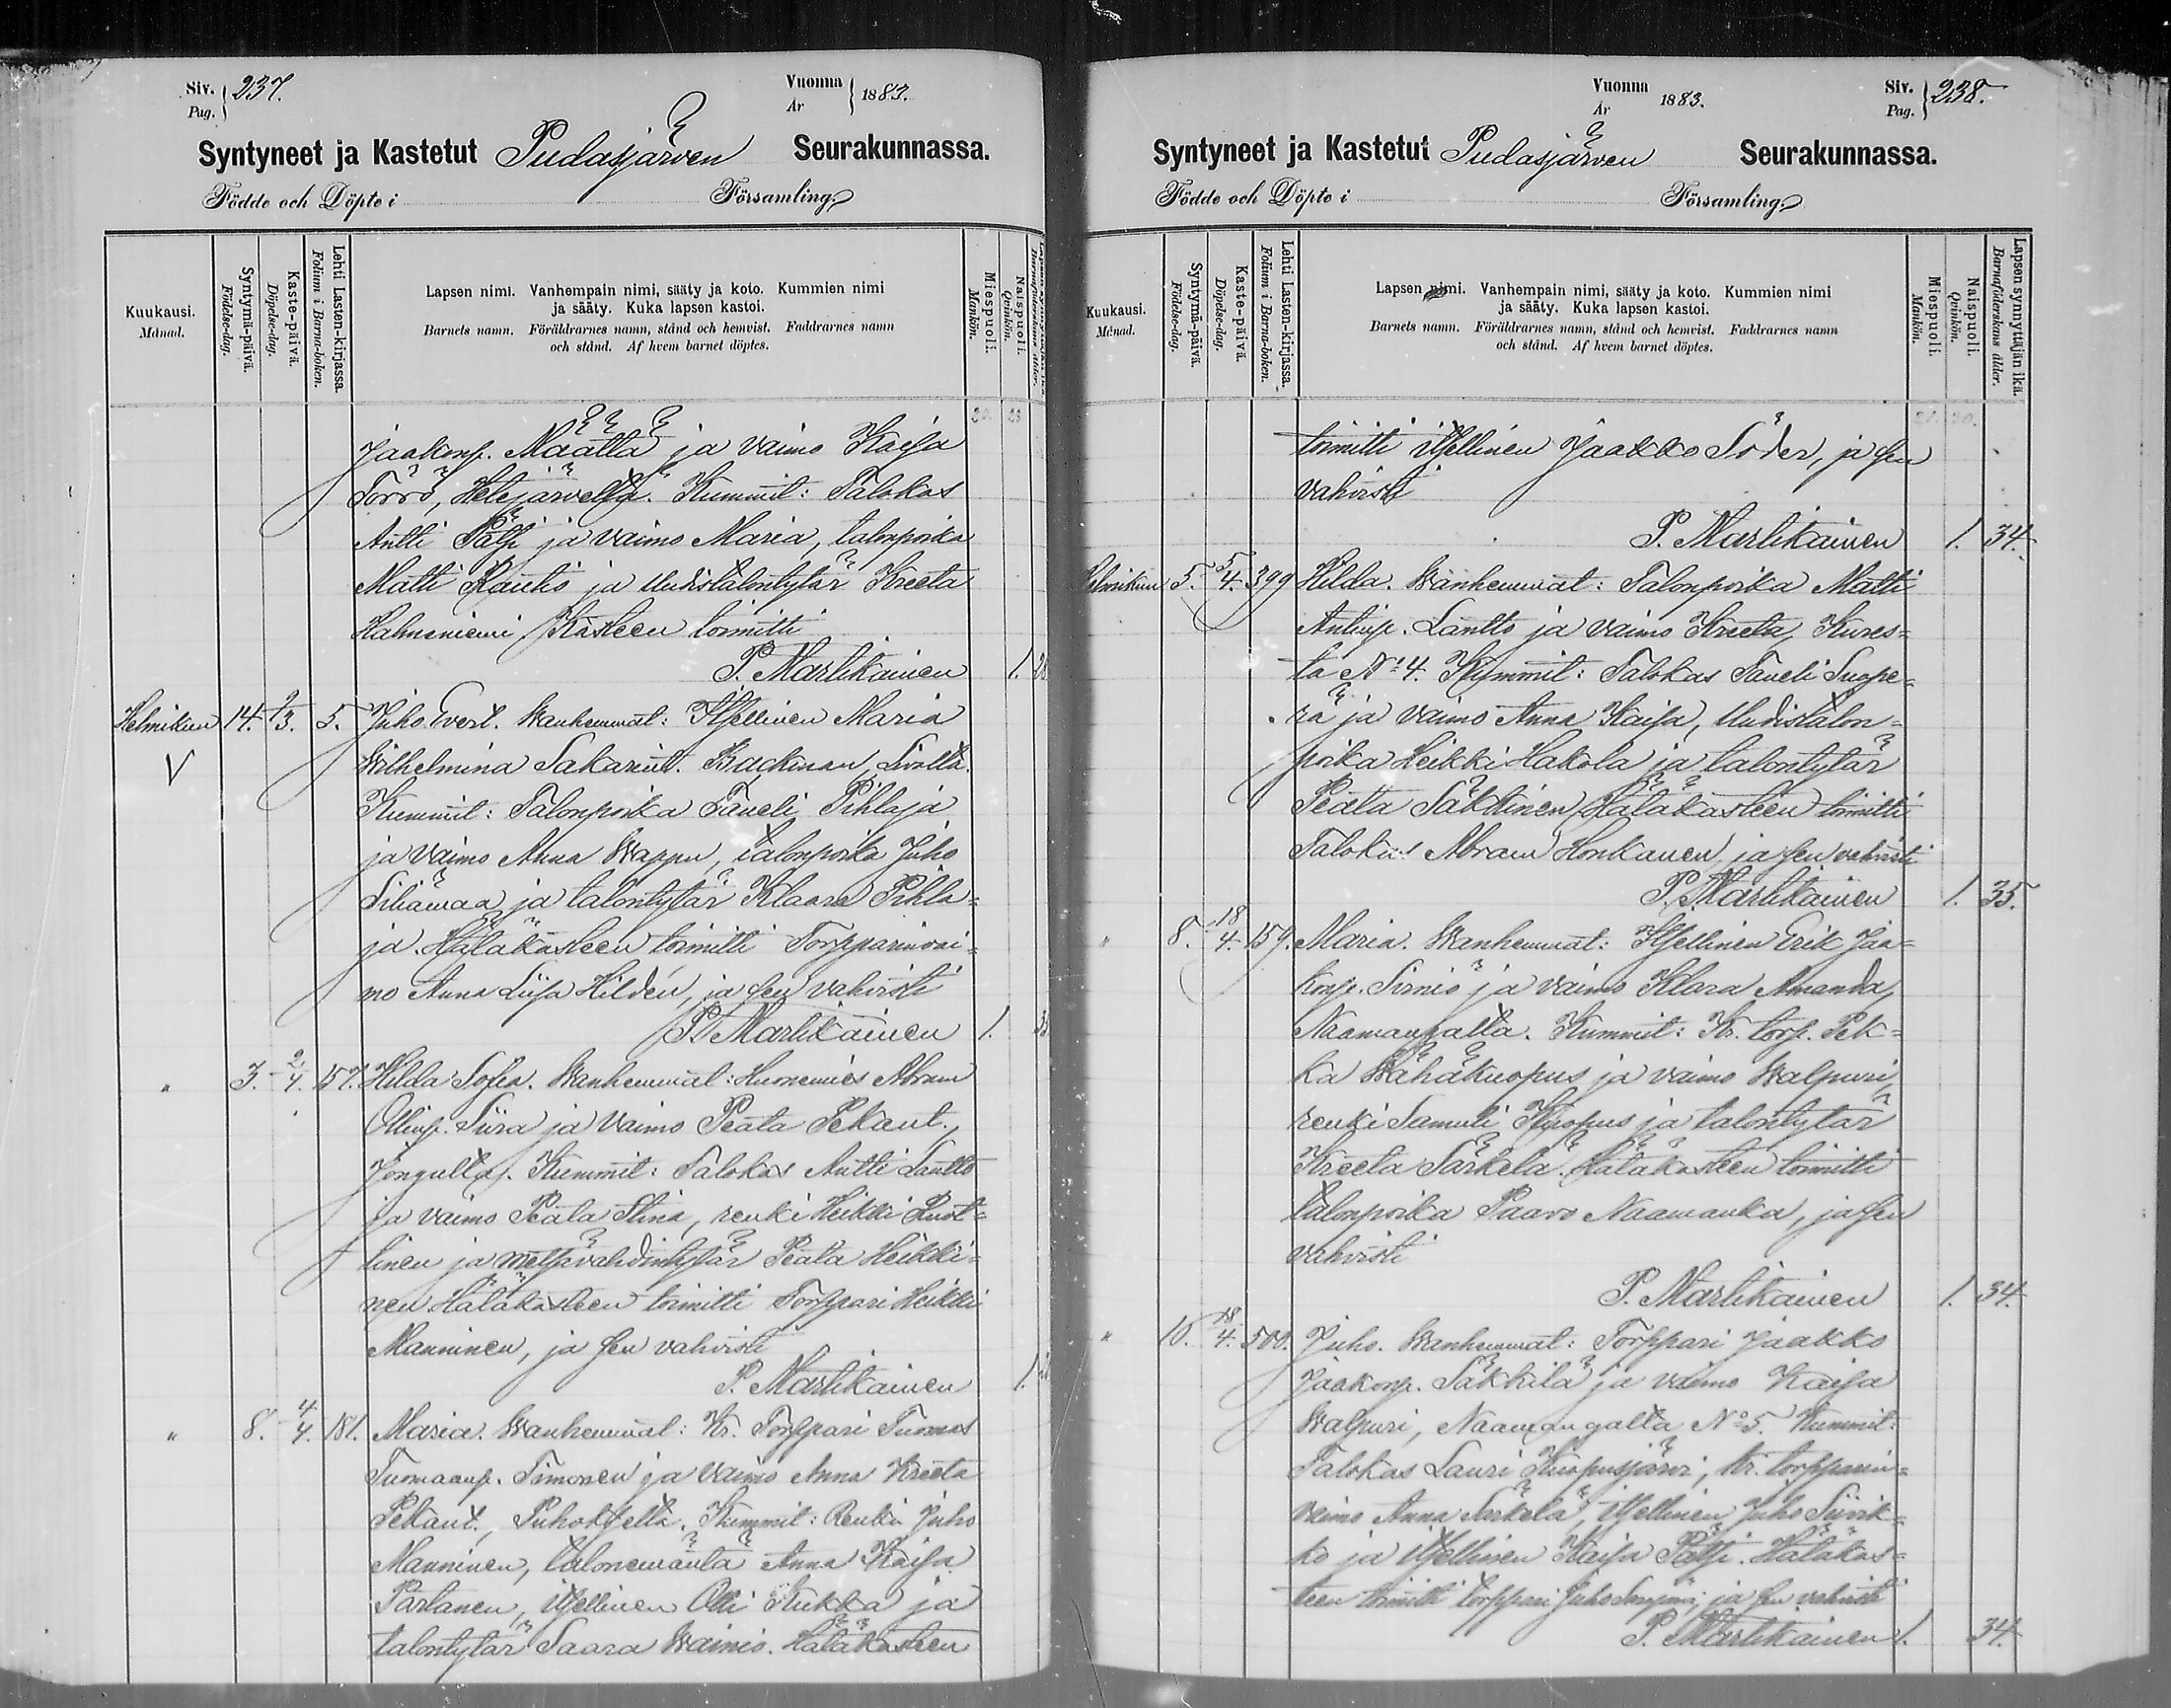 Siv. Pag. 237.
Vuonna År 1883.
Syntyneet ja Kastetut Pudasjärven Seurakunnassa.
Födde och Döpte i Församling.
Kuukausi. Månad.
Syntymä-päivä. Födelse-dag.
Kaste-päivä. Döpelse-dag.
Lehti Lasten-kirjassa. Folium i Barna-boken.
Lapsen nimi. Vanhempain nimi, sääty ja koto. Kummien nimi
ja sääty. Kuka lapsen kastoi.
Barnets namn. Föräldrarnes namn, stånd och hemvist. Faddrarnes namn
och stånd. Af hvem barnet döptes.
Miespuoli. Mankön.
Naispuoli. Qvinkön.
Jaakonp. Määttä ja vaimo Kaisa
Törrö, Hetejärveltä. Kummit: Talokas
Antti Pätsi ja vaimo Maria, talonpoika
Matti Rautio ja Uudistalontytär Kreeta
Halmeniemi Kasteen toimitti
P. Martikainen 1.
Helmikuu 14. 5. Juho Evert. Wanhemmat: Itsellinen Maria
Wilhelmina Sakarint. Backman, Livolta.
Kummit: Talonpoika Taneli Pihlaja
ja vaimo Anna Wappu, talonpoika Juho
Siliämaa ja talontytär Klaara Pihla=
ja. Hätäkasteen toimitti Torpparinvai=
mo Anna Liisa Hildén, ja sen vahvisti
P. Martikainen 1.
" 3. 2/4. 157. Hilda Sofia. Wanhemmat: Huonemies Abram
Ollinp. Siira ja vaimo Peata Pekant.
Jongulta. Kummit: Talokas Antti Lantto
ja vaimo Peata Stina, renki Heikki Puot=
tinen ja metsävahdintytär Peata Heikki=
nen Hätäkasteen toimitti Torppari Heikki
Manninen, ja sen vahvisti
P. Martikainen 1.
" 8. 4/4. 181. Maria. Wanhemmat: Kr. Torppari Tuomas
Tuomaanp. Timonen ja vaimo Anna Kreeta
Pekant., Puhokselta. Kummit: Renki Juho
Manninen, talonemäntä Anna Kaisa
Partanen, itsellinen Olli Kukka ja
talontytär Saara Wainio. Hätäkasteen
Vuonna År 1883.
Siv. Pag. 238.
Syntyneet ja Kastetut Pudasjärven Seurakunnassa.
Födde och Döpte i Församling.
Kuukausi. Månad.
Syntymä-päivä. Födelse-dag.
Kaste-päivä. Döpelse-dag.
Lehti Lasten-kirjassa. Folium i Barna-boken.
Lapsen nimi. Vanhempain nimi, sääty ja koto. Kummien nimi
ja sääty. Kuka lapsen kastoi.
Barnets namn. Föräldrarnes namn, stånd och hemvist. Faddrarnes namn
och stånd. Af hvem barnet döptes.
Miespuoli. Mankön.
Naispuoli. Qvinkön.
Lapsen synnyttäjän ikä. Barnaföderskans ålder.
toimitti itsellinen Jaakko Söder, ja sen
vahvisti
P. Martikainen 1. 34.
Helmikuu 5. 5/4. 399 Hilda. Wanhemmat: Talonpoika Matti
Antinp. Lantto ja vaimo Kreeta, Kures=
ta No 4. Kummit: Talokas Taneli Suope=
rä ja vaimo Anna Kaisa, Uudistalon=
poika Heikki Hakola ja talontytär
Peata Säkkinen, Hätäkasteen toimitti
Talokas Abram Honkanen, ja sen vahvisti
P. Martikainen 1. 35.
" 8. 18/4. 159. Maria. Wanhemmat: Itsellinen Erik Jaa=
konp. Sirniö ja vaimo Klara Amanda,
Naamangalta. Kummit: Kr. torp. Pek=
ka Wähäkuopus ja vaimo Walpuri,
renki Samuli Kuopus ja talontytär
Kreeta Särkelä. Hätäkasteen toimitti
talonpoika Paavo Naamanka, ja sen
vahvisti
P. Martikainen 1. 34.
" 10. 18/4. 500. Juho. Wanhemmat: Torppari Jaakko
Jaakonp. Säkkilä ja vaimo Kaisa
Walpuri, Naamangalta No 5. Kummit:
Talokas Lauri Kuopusjärvi, kr. torpparin=
vaimo Anna Särkelä, itsellinen Juho Siivik=
ko ja itsellinen Kaisa Pätsi. Hätäkas=
teen toimitti torppari Juho ja sen vahvisti
P. Martikainen 1. 34.